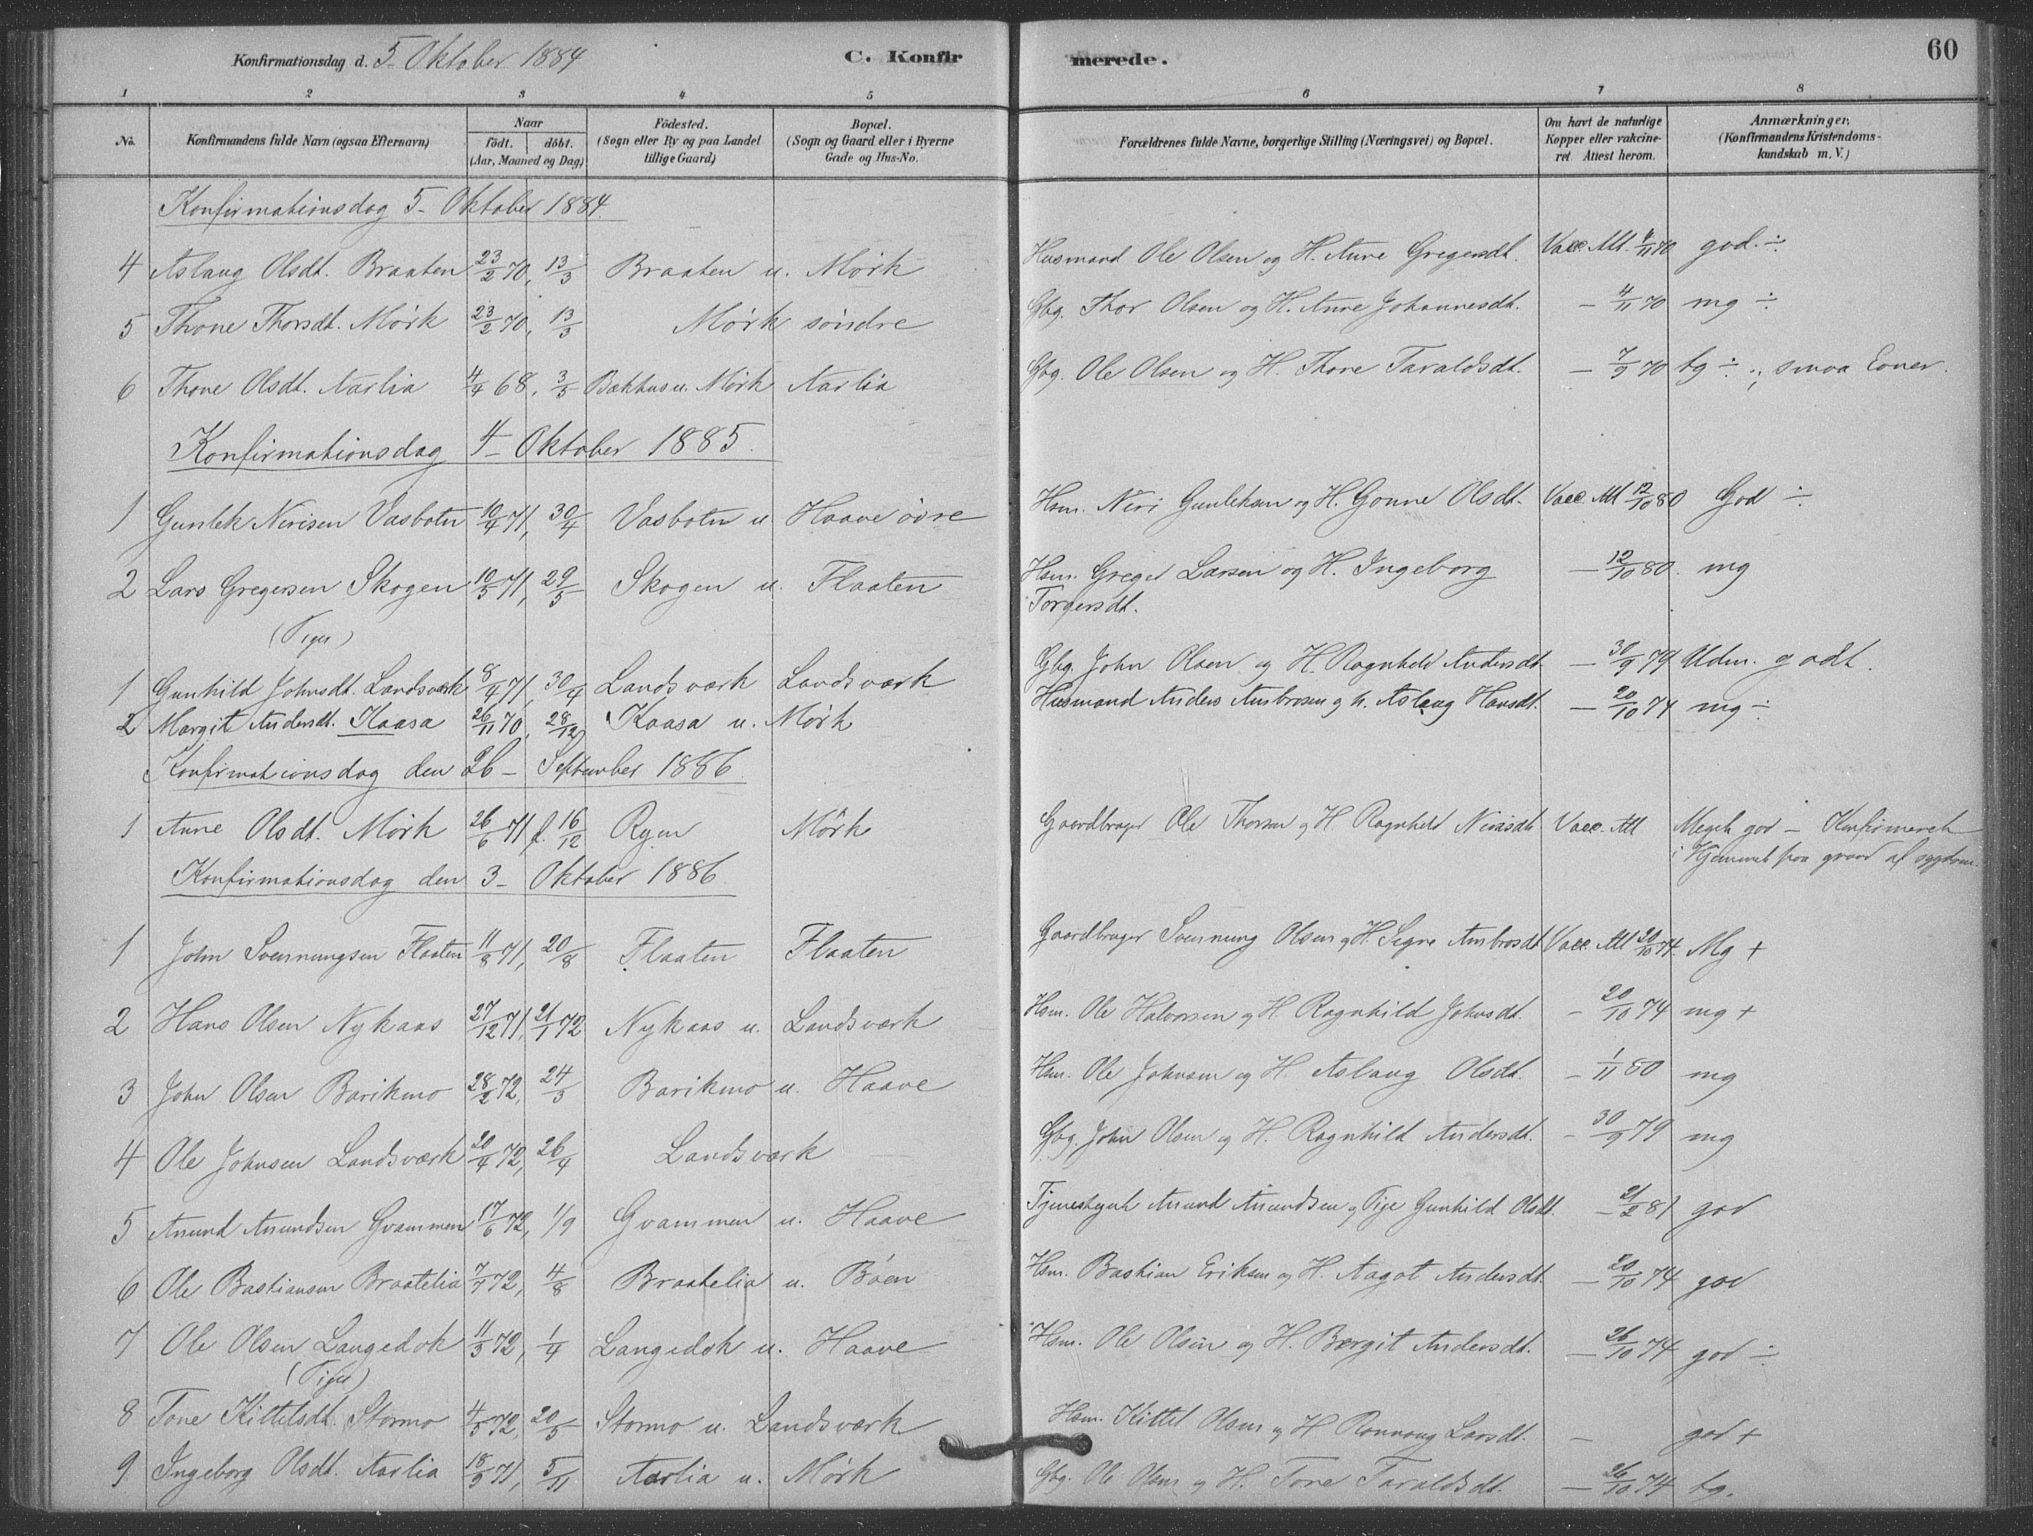 Konfirmationsdag d. 5- Oktober 1884 C. Konfirmerede. 60
1 2 3 4 5 6 7 8
No. Konfirmandens fulde Navn (ogsaa Efternavn) Naar født. døbt. (Aar, Maaned og Dag) Fødested. (Sogn eller By og paa Landet tillige Gaard) Bopæl. (Sogn og Gaard eller i Byerne Gade og Hus-No. Forældrenes fulde Navne, borgerlige Stilling (Næringsvei) og Bopæl. Om havt de naturlige Kopper eller vakcineret Attest herom. Anmærkninger. (Konfirmandens Kristendomskundskab m. V.)
Konfirmationsdag 5- Oktober 1884.
4 Aslaug Olsdt. Braaten 23/2 70, 13/3 Braaten u. Mørk Husmand Ole Olsen og H. Anne Gregersdt. Vacc. Att. 4/11 70 god. ÷
5 Thone Thorsdt. Mørk 23/2 70, 13/3 Mørk søndre Gbg. Thor Olsen og H. Anne Johannesdt. — 4/11 70 mg ÷
6 Thone Olsdt. Aarlia 4/4 68, 3/5 Bakhus u. Mørk Aarlia Gbg. Ole Olsen og H. Thone Taraldsdt. — 7/9 70 tg ÷ ; smaa Evner.
Konfirmationsdag 4- Oktober 1885.
1 Gunlek Nirisen Vasbotn 10/4 71, 30/4 Vasbotn u. Haave øvre Hsm. Niri Gunleksen og H. Gonne Olsdt. Vacc. Att 12/10 80 God ÷
2 Lars Gregersen Skogen 10/5 71, 29/5 Skogen u. Flaaten Hsm. Greger Larsen og H. Ingeborg — 12/10 80. mg
Torgersdt.
(Piger)
1 Gunhild Johnsdt. Landsværk 8/4 71, 30/4 Landsværk Landsværk Gbg. John Olsen og H. Ragnhild Andersdt. — 30/9 79 Udm. godt.
2 Margit Andersdt. Kaasa 26/11 70, 28/12 Kaasa u. Mørk Husmand Anders Ambrosen og h. Aslaug Hansdt. — 20/10 74 mg ÷
Konfirmationsdag den 26- September 1886
1 Anne Olsdt. Mørk 26/6 71, f. 16/12 Ryen Mørk Gaardbruger Ole Thorsen og H Ragnhild Nirisdt Vacc. Att Meget god — Konfirmeret
i Hjemmet paa grund af sygdom.
Konfirmationsdag den 3- Oktober 1886
1 John Svennungsen Flaaten 11/8 71, 20/8 Flaaten Flaaten Gaardbruger Svennung Olsen og H. Signe Ambrosdt Vacc. Att 20/10 74. Mg +
2 Hans Olsen Nykaas 27/12 71, 21/1 72 Nykaas u. Landsværk Hsm. Ole Halvorsen og H. Ragnhild Johnsdt. — 20/10 74 mg +
3 John Olsen Barikmo 28/2 72, 24/3 Barikmo u. Haave Hsm. Ole Johnsen og H. Aslaug Olsdt. — 1/11 80 mg
4 Ole Johnsen Landsværk 20/4 72, 26/4 Landsværk Gbg. John Olsen og H. Ragnhild Andersdt. — 30/9 79 mg
5 Amund Amundsen Gvammen 17/6 72, 1/9 Gvammen u. Haave Tjenestegut Amund Amundsen og Pige Gunhild Olsdt. — 21/2 81 god
6 Ole Bastiansen Braatelia 7/7 72, 4/8 Braatelia u. Bøen Hsm. Bastian Eriksen og H. Aagot Andersdt. — 20/10 74 god
7 Ole Olsen Langedok 11/3 72, 1/4 Langedok u. Haave Hsm. Ole Olsen og H. Bergit Andersdt. — 26/10 74 god ÷
(Piger)
8 Tone Kittelsdt. Stormo 4/5 72, 20/5 Stormo u. Landsværk Hsm. Kittel Olsen og H Rannoug Larsdt. — god +
9 Ingeborg Olsdt. Aarlia 18/9 71, 5/11 Aarlia u. Mørk Gbg. Ole Olsen og H. Tone Taraldsdt. — 26/10 74 tg.